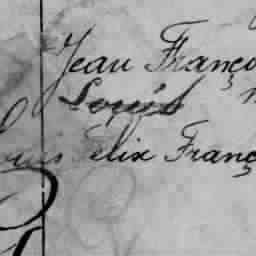 Jean Franço
Louis
Louis Felix Franç